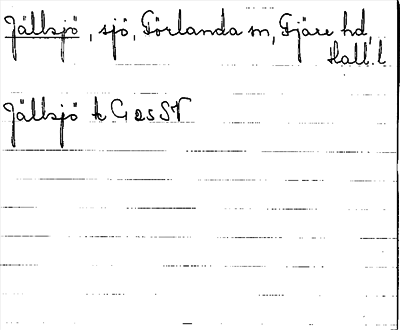 Jällsjö, sjö, Förlanda sn, Fjäre hd,
Hall. l
Jällsjö tk G 25 SV